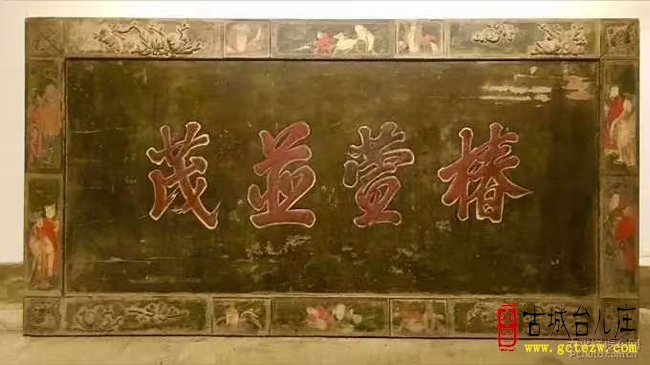 椿萱並茂
古城台儿庄
www.gctezw.com